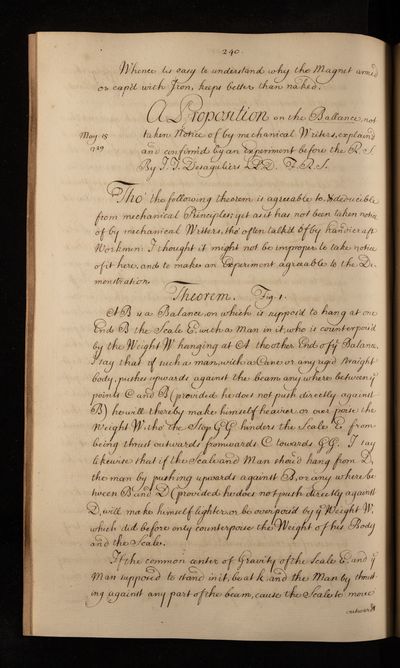 240.
Whence tis easy to understand why the Magnet arm'd
or cap'd with Iron, keeps better than naked.
A Proposition on the Ballance, not
taken Notice of by mechanical Writers, explain'd
and confirm'd by an Experiment before the R. S.
By J. T. Desaguliers LLD. F.R.S.
May 15
1729
Tho' the following theorem is agreeable to & deducible
from mechanical Principles; yet as it has not been taken notice
of by mechanical Writers, tho' often talk'd of by handicraft
Workmen: I thought it might not be improper to take notice
of it here, and to make an Experiment agreeable to the De-
monstration.
Theorem. Fig. 1.
AB is a Balance, on which is suppos'd to hang at one
End B the Scale E with a Man in it, who is counterpois'd
by the Weight W hanging at A the other End of ye Balance.
I say that if such a man, with a Cane or any rigid straight
body, pushes upwards against the beam any where between ye
points C and B (provided he does not push directly against
B) he will thereby make himself heavier, or over poise the
Weight W, tho' the Stop GG hinders the Scale E from
being thrust outwards from wards C towards GG. I say
likewise that if the Scale and Man shou'd hang from D,
the man by pushing upwards against B, or any where be
tween B and D (provided he does not push directly against
D, will make himself lighter, or be overpois'd by ye Weight W,
which did before only counterpoise the Weight of his Body
and the Scale.
If the common center of Gravity of the Scale E, and ye
Man suppos'd to stand in it, be at k, and the Man by thrust-
ing against any part of the beam, cause the Scale to move
outwards